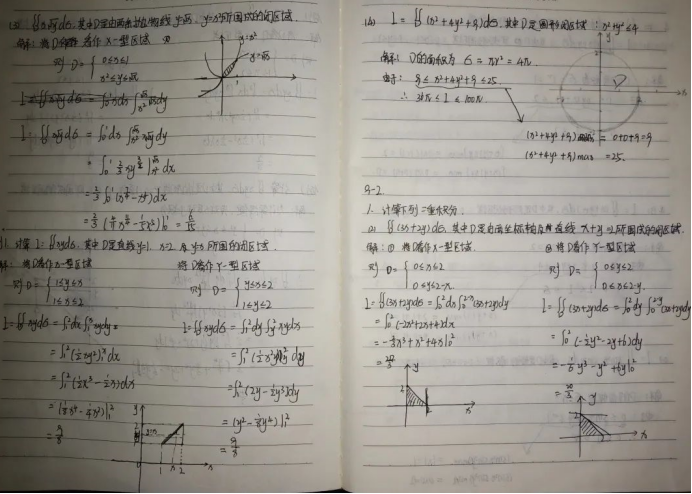 (3). ∬x√y dσ, 其中D是由两条抛物线 y=√x, y=x²所围成的闭区域
解: 将D看作X-型区域
则 D= { 0≤x≤1
x²≤y≤√x
y=x²
y=√x
I=∬x√y dσ = ∫₀¹dx ∫_{x²}^{√x} x√y dy
= ∫₀¹ 2/3 x y^{3/2} |_{x²}^{√x} dx
= 2/3 ∫₀¹ (x^{7/4} - x⁴)dx
= 2/3 (4/11 x^{11/4} - 1/5 x⁵)|₀¹ = 6/55
1. 计算 I=∬xydσ, 其中D是直线 y=1. x=2 及 y=x所围的闭区域.
解: 将D看作X-型区域
则 D= { 1≤y≤x
1≤x≤2
I=∬xydσ=∫₁²dx∫₁ˣxydy
= ∫₁² (½xy²)|₁ˣ dx
= ∫₁² (½x³-½x)dx
= (⅛x⁴-¼x²)|₁²
= 9/8
将D看作Y-型区域
则 D= { y≤x≤2
1≤y≤2
I=∬xydσ=∫₁²dy∫_y²xydx
= ∫₁² (½x²y)|_y² dy
= ∫₁² (2y-½y³)dy
= (y²-⅛y⁴)|₁²
= 9/8
(4) I=∬(x²+4y²+9)dσ, 其中D是圆形闭区域: x²+y²≤4
解: D的面积为 σ=πr²=4π.
由于: 9≤x²+4y²+9≤25.
∴ 36π≤I≤100π
D
(x²+4y²+9)min = 0+0+9=9
(x²+4y²+9)max = 25.
9-2
1. 计算下列二重积分.
(2) ∬(3x+2y)dσ, 其中D是由两坐标轴及直线 x+y=2所围成的闭区域.
解: ① 将D看作X-型区域.
则 D= { 0≤x≤2
0≤y≤2-x.
I=∬(3x+2y)dσ=∫₀²dx∫₀^{2-x}(3x+2y)dy
=∫₀²(-2x²+2x+4)dx
=-⅔x³+x²+4x|₀²
=20/3
② 将D看作Y-型区域
则 D= { 0≤y≤2
0≤x≤2-y.
I=∬(3x+2y)dσ=∫₀²dy∫₀^{2-y}(3x+2y)dx
=∫₀²(-½y²-2y+6)dy
=-⅙y³-y²+6y|₀²
=20/3